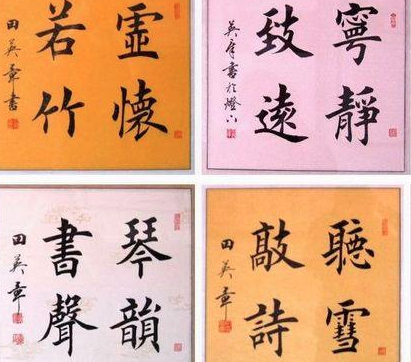 虛懷
若竹
田英章書
寧靜
致遠
英章書於燈下
琴韻
書聲
田英章
聽雪
敲詩
田英章